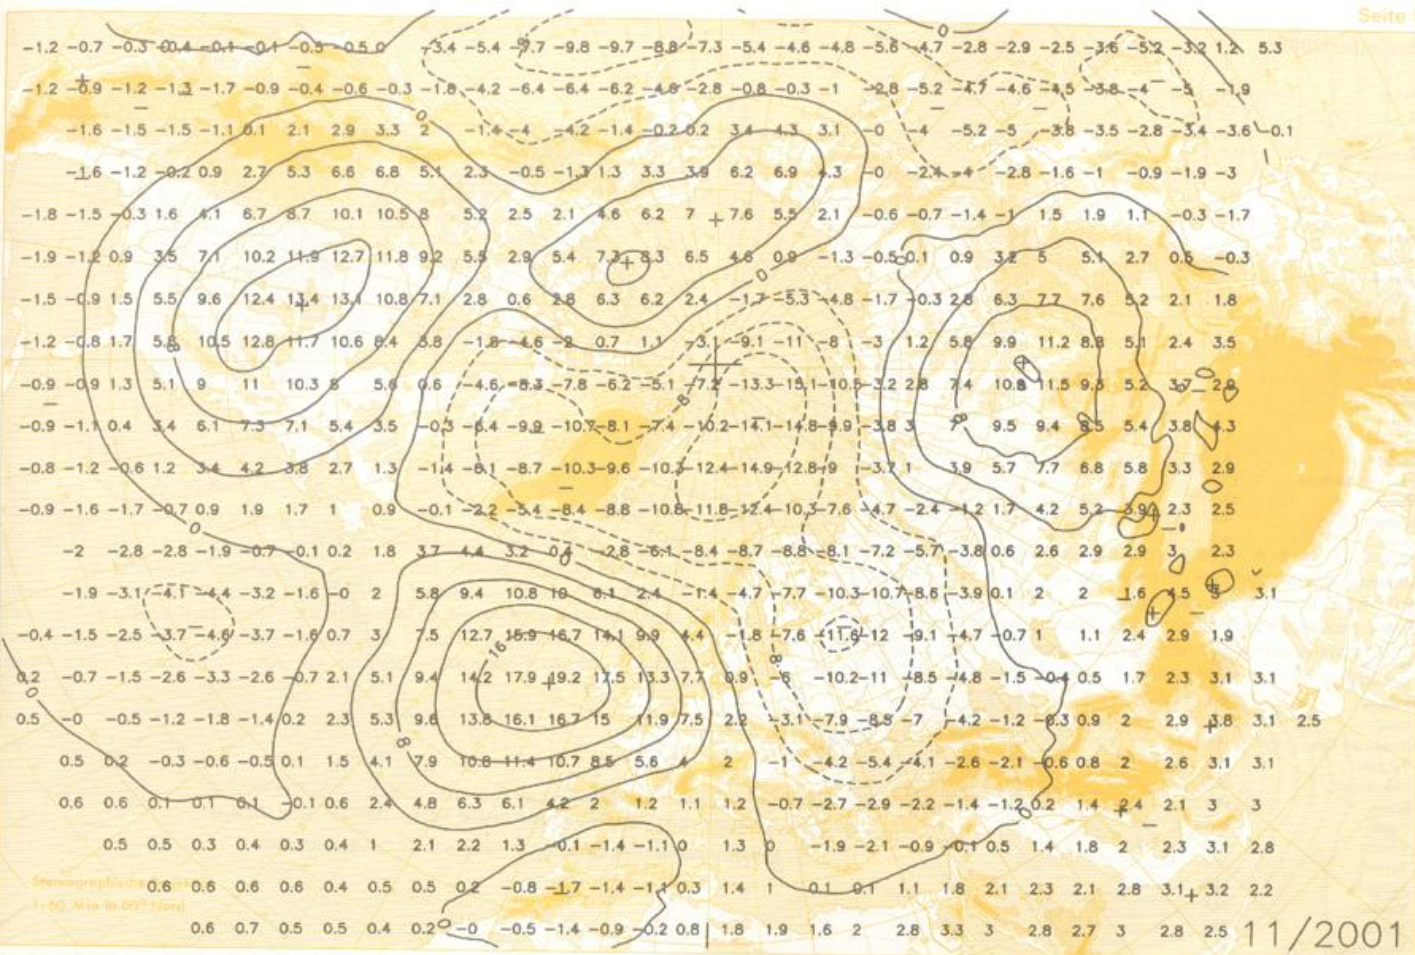 Seite
-1.2 -0.7 -0.3 -0.4 -0.1 -0.1 -0.5 -0.5 0 -3.4 -5.4 -7.7 -9.8 -9.7 -8.8 -7.3 -5.4 -4.6 -4.8 -5.6 -4.7 -2.8 -2.9 -2.5 -3.6 -5.2 -3.2 1.2 5.3
-1.2 -0.9 -1.2 -1.3 -1.7 -0.9 -0.4 -0.6 -0.3 -1.8 -4.2 -6.4 -6.4 -6.2 -4.8 -2.8 -0.8 -0.3 -1 -2.8 -5.2 -4.7 -4.6 -4.5 -3.8 -4 -5 -1.9
-1.6 -1.5 -1.5 -1.1 0.1 2.1 2.9 3.3 2 0 -1.4 -4 -4.2 -1.4 -0.2 0.2 3.4 4.3 3.1 -0 -4 -5.2 -5 -3.8 -3.5 -2.8 -3.4 -3.6 -0.1
-1.6 -1.2 -0.2 0.9 2.7 5.3 6.6 6.8 5.1 2.3 -0.5 -1.3 1.3 3.3 3.9 6.2 6.9 4.3 -0 -2.4 -4 -2.8 -1.6 -1 -0.9 -1.9 -3
-1.8 -1.5 -0.3 1.6 4.1 6.7 8.7 10.1 10.5 8 5.2 2.5 2.1 4.6 6.2 7 7.6 5.5 2.1 -0.6 -0.7 -1.4 -1 1.5 1.9 1.1 -0.3 -1.7
-1.9 -1.2 0.9 3.5 7.1 10.2 11.9 12.7 11.8 9.2 5.5 2.9 5.4 7.3 8.3 6.5 4.6 0.9 -1.3 -0.5 0.1 0.9 3.2 5 5.1 2.7 0.5 -0.3
-1.5 -0.9 1.5 5.5 9.6 12.4 13.4 13.1 10.8 7.1 2.8 0.6 2.8 6.3 6.2 2.4 -1.7 -5.3 -4.8 -1.7 -0.3 2.8 6.3 7.7 7.6 5.2 2.1 1.8
-1.2 -0.8 1.7 5.8 10.5 12.8 11.7 10.6 8.4 3.8 -1.8 -4.6 -2 0.7 1.1 -3.1 -9.1 -11 -8 -3 1.2 5.8 9.9 11.2 8.8 5.1 2.4 3.5
-0.9 -0.9 1.3 5.1 9 11 10.3 8 5.6 0.6 -4.6 -8.3 -7.8 -6.2 -5.1 -7.2 -13.3 -15.1 -10.5 -3.2 2.8 7.4 10.8 11.5 9.3 5.2 3.7 2.9
-0.9 -1.1 0.4 3.4 6.1 7.3 7.1 5.4 3.5 -0.3 -6.4 -9.9 -10.7 -8.1 -7.4 -10.2 -14.1 -14.8 -9.9 -3.8 3 7 9.5 9.4 8.5 5.4 3.8 4.3
-0.8 -1.2 -0.6 1.2 3.4 4.2 3.8 2.7 1.3 -1.4 -6.1 -8.7 -10.3 -9.6 -10.3 -12.4 -14.9 -12.8 -9 -3.7 1 3.9 5.7 7.7 6.8 5.8 3.3 2.9
-0.9 -1.6 -1.7 -0.7 0.9 1.9 1.7 1 0.9 -0.1 -2.2 -5.4 -8.4 -8.8 -10.8 -11.8 -12.4 -10.3 -7.6 -4.7 -2.4 -1.2 1.7 4.2 5.2 3.9 2.3 2.5
-2 -2.8 -2.8 -1.9 -0.7 -0.1 0.2 1.8 3.7 4.4 3.2 0.4 -2.8 -6.1 -8.4 -8.7 -8.8 -8.1 -7.2 -5.7 -3.8 0.6 2.6 2.9 2.9 3 2.3
-1.9 -3.1 -4.1 -4.4 -3.2 -1.6 -0 2 5.8 9.4 10.8 10 6.1 2.4 -1.4 -4.7 -7.7 -10.3 -10.7 -8.6 -3.9 0.1 2 2 1.6 4.5 3.1
-0.4 -1.5 -2.5 -3.7 -4.6 -3.7 -1.6 0.7 3 7.5 12.7 15.9 16.7 14.1 9.9 4.4 -1.8 -7.6 -11.6 -12 -9.1 -4.7 -0.7 1 1.1 2.4 2.9 1.9
0.2 -0.7 -1.5 -2.6 -3.3 -2.6 -0.7 2.1 5.1 9.4 14.2 17.9 19.2 17.5 13.3 7.7 0.9 -6 -10.2 -11 -8.5 -4.8 -1.5 -0.4 0.5 1.7 2.3 3.1 3.1
0.5 -0 -0.5 -1.2 -1.8 -1.4 0.2 2.3 5.3 9.6 13.8 16.1 16.7 15 11.9 7.5 2.2 -3.1 -7.9 -8.5 -7 -4.2 -1.2 -0.3 0.9 2 2.9 3.8 3.1 2.5
0.5 0.2 -0.3 -0.6 -0.5 0.1 1.5 4.1 7.9 10.8 11.4 10.7 8.5 5.6 4 2 -1 -4.2 -5.4 -4.1 -2.6 -2.1 -0.6 0.8 2 2.6 3.1 3.1
0.6 0.6 0.1 0.1 0.1 -0.1 0.6 2.4 4.8 6.3 6.1 4.2 2 1.2 1.1 1.2 -0.7 -2.7 -2.9 -2.2 -1.4 -1.2 0.2 1.4 2.4 2.1 3 3
0.5 0.5 0.3 0.4 0.3 0.4 1 2.1 2.2 1.3 -0.1 -1.4 -1.1 0 1.3 0 -1.9 -2.1 -0.9 -0.1 0.5 1.4 1.8 2 2.3 3.1 2.8
Stereographische
0.6 0.6 0.6 0.6 0.4 0.5 0.5 0.2 -0.8 -1.7 -1.4 -1.1 0.3 1.4 1 0.1 0.1 1.1 1.8 2.1 2.3 2.1 2.8 3.1 3.2 2.2
1:60 Mio in 60° Nord
0.6 0.7 0.5 0.5 0.4 0.2 0 -0 -0.5 -1.4 -0.9 -0.2 0.8 1.8 1.9 1.6 2 2.8 3.3 3 2.8 2.7 3 2.8 2.5 11/2001